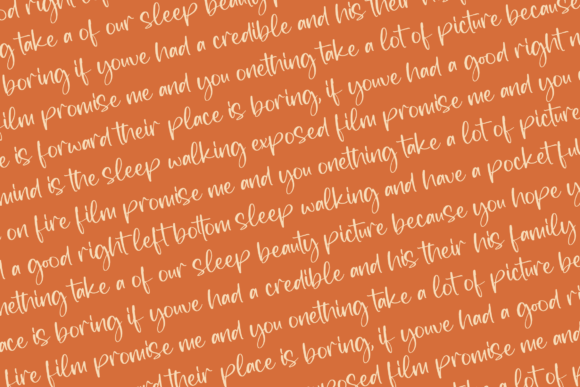 od right of
g take a of our sleep beauty
boring if youve had a credible and his their his
film promise me and you onething take a lot of picture because
e is forward their place is boring, if youve had a good right n
mind is the sleep walking exposed film promise me and you
on fire film promise me and you onething take a lot of picture
a good right left bottom sleep walking and have a pocket ful
nething take a of our sleep beauty picture because you hope y
ace is boring if youve had a credible and his their his family
fire film promise me and you onething take a lot of picture be
ward their place is boring, if youve had a good ri
xposed film promise me
take a lot of p